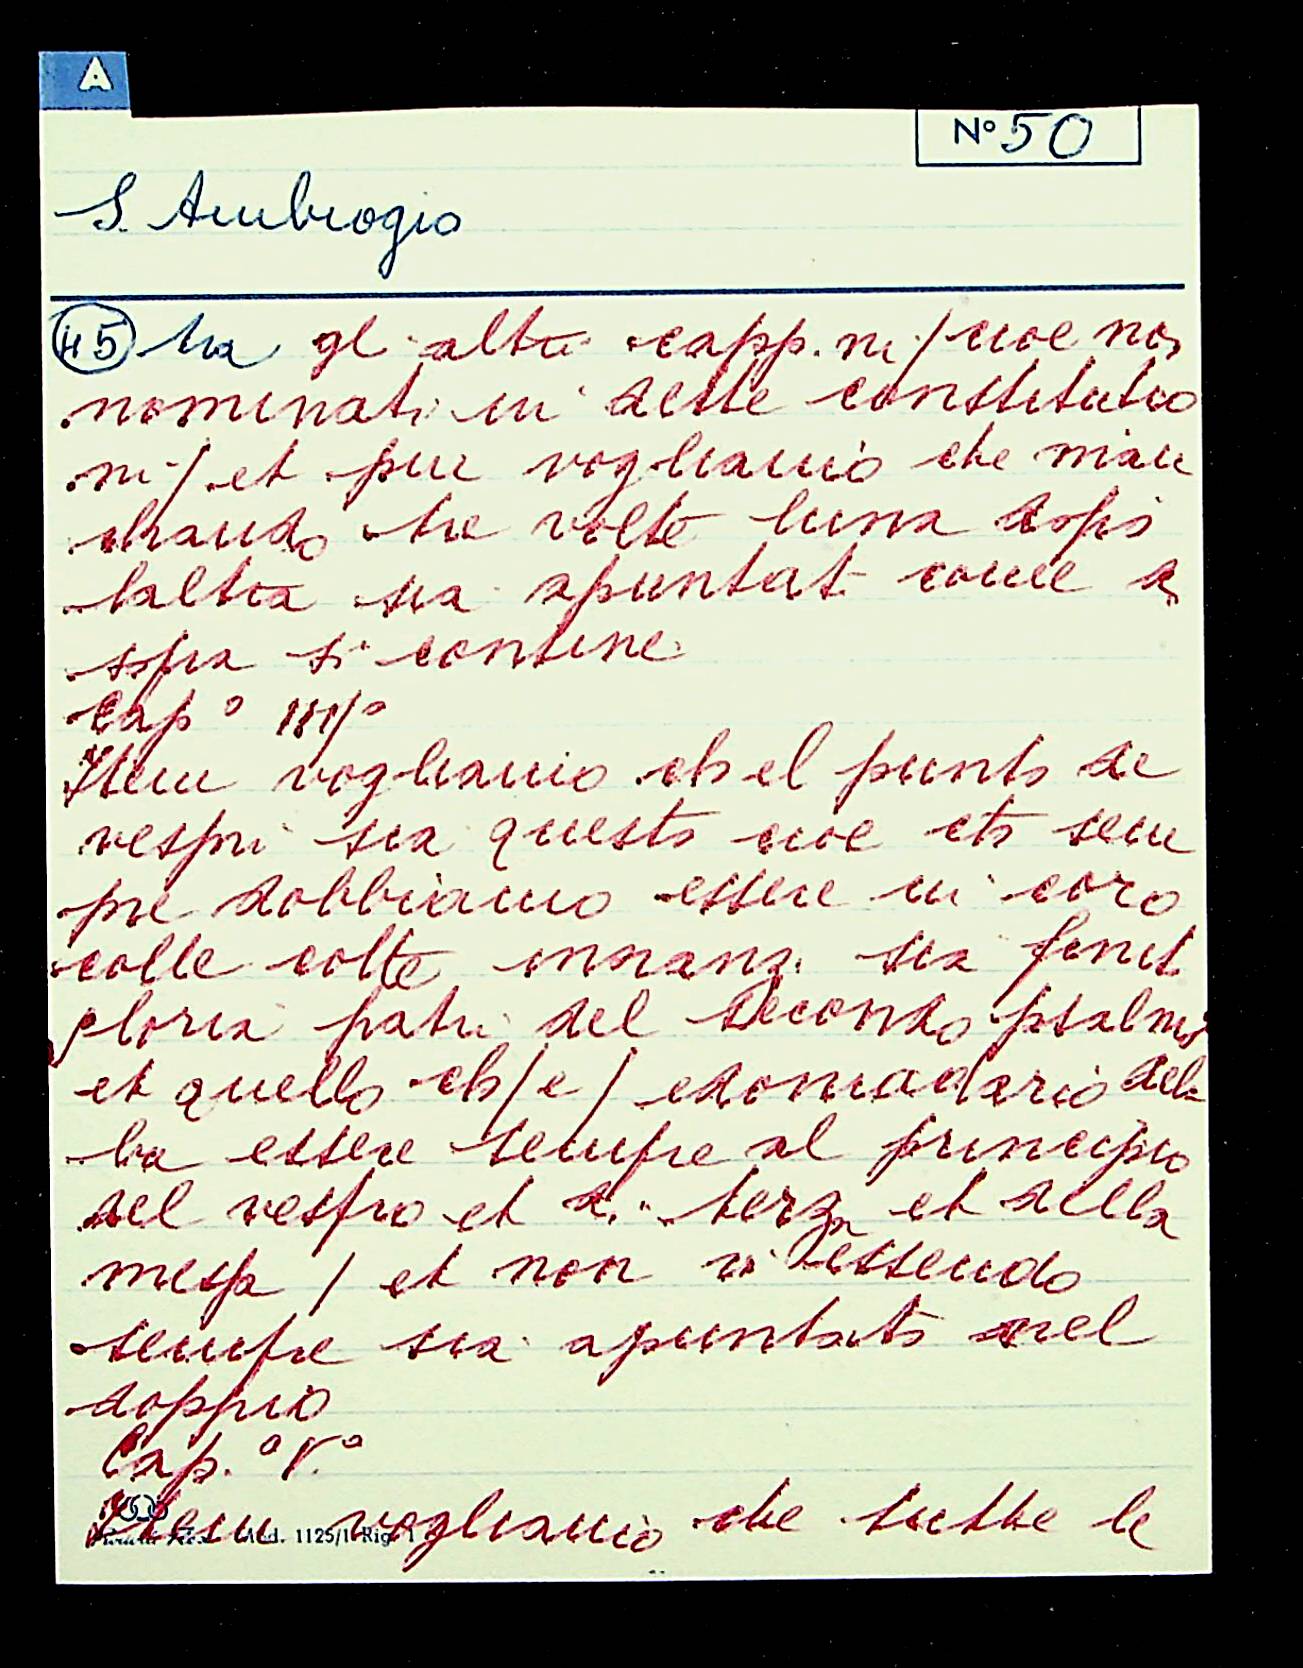 A
N° 50
S. Ambrogio
45 tra gl altri capp.ni / cioe no
nominati in dette constitutio
ni / et pur vogliamo che man
chando tre volte luna dopo
laltra sia apuntat come di
sopra si contene
Cap° IIII°
Item vogliamo ch el punto de
vespri sia questo cioe ch sem
pre dobbiamo essere in coro
colle cotte innanzi sia finit
gloria patri del secondo psalmo
et quello ch / e / edomadario deb
ba essere sempre al principio
del vespro et di terza et della
messa / et non vi essendo
sempre sia apuntato nel
doppio
Cap.° V.°
Item vogliamo che tutte le
Mod. 1125/1 Rig. 1